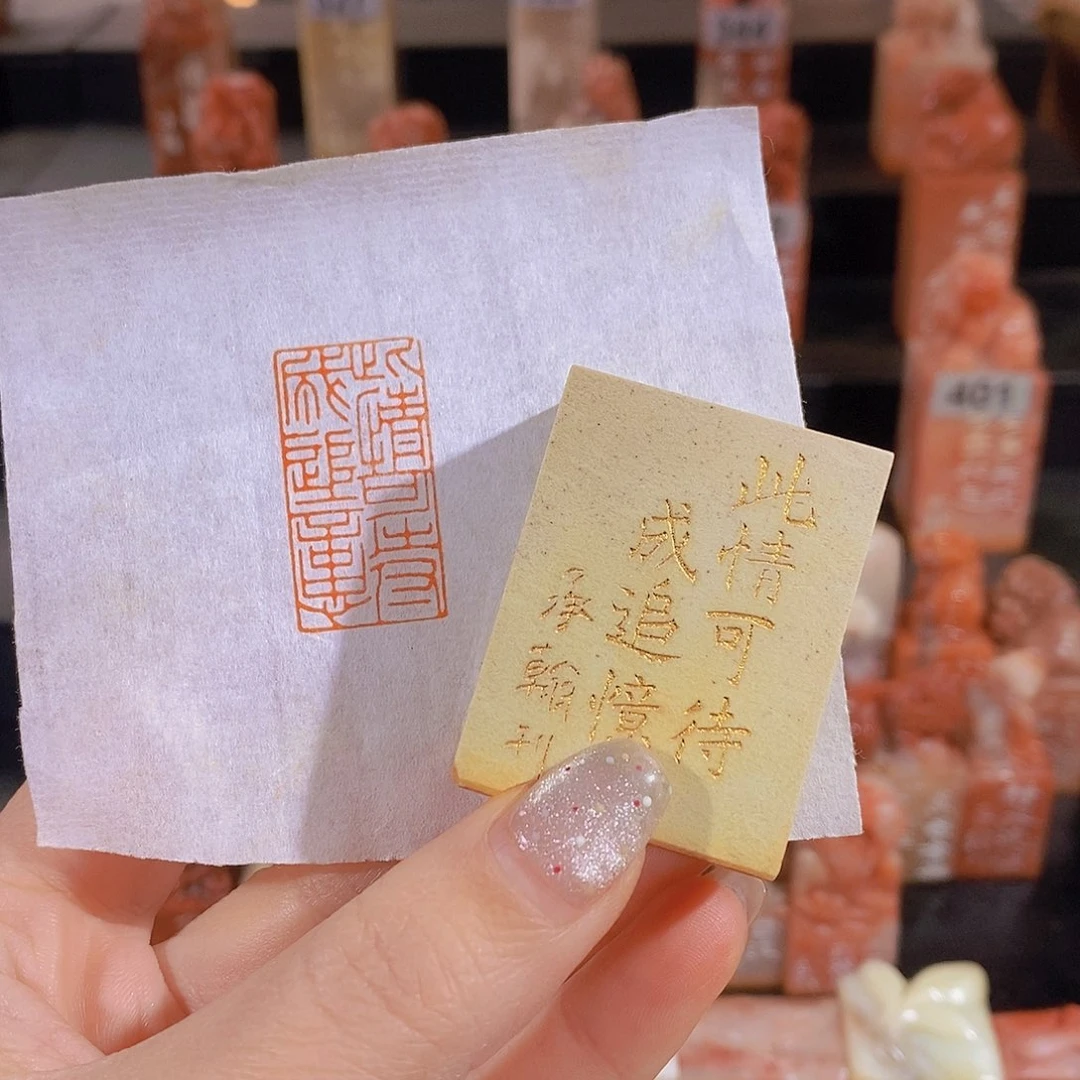 此情可待
成追憶
承翰刊
此情可待
成追憶
401